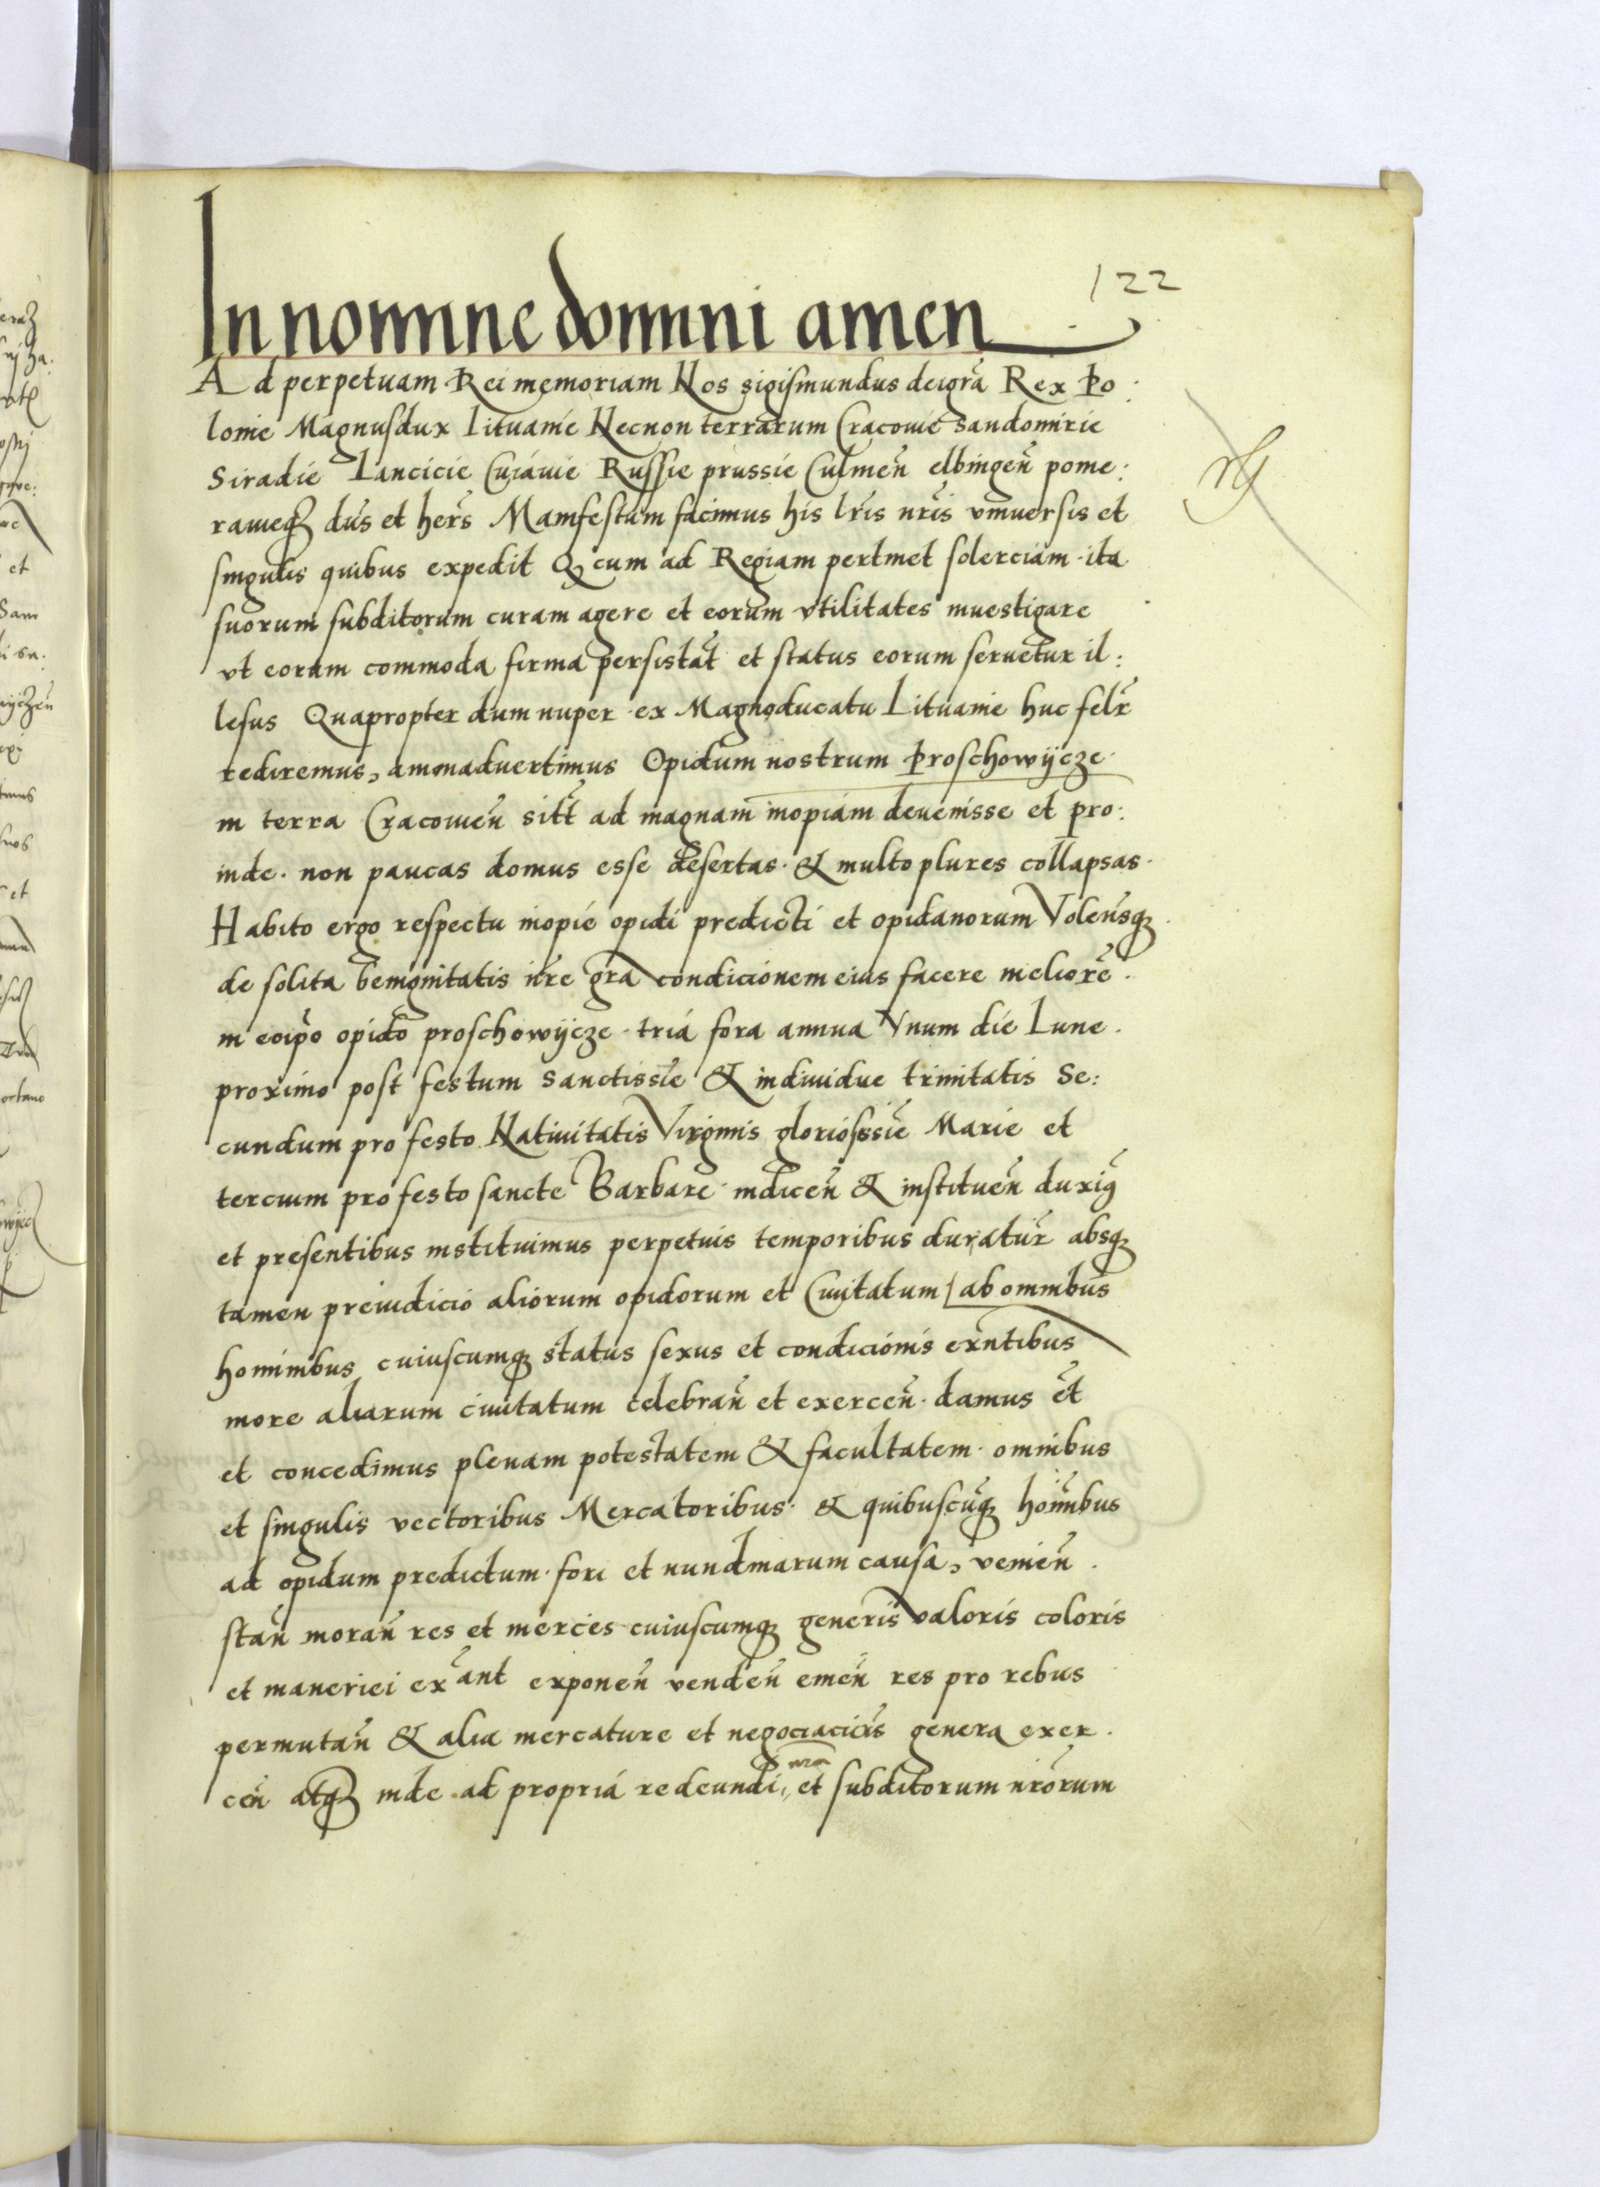 122
In nomine domini amen
Ad perpetuam Rei memoriam Nos sigismundus deigrã Rex Po:
lonie Magnusdux Lituanie Necnon terrarum Cracouie Sandomirie
Siradie Lancicie Cuiauie Russie prussie Culmeñ elbingeñ pome:
ranieqꝫ dñs et herẽs Manifestum facimus his lrĩs nrĩs vniuersis et
singulis quibus expedit Qꝫ cum ad Regiam pertinet solerciam · ita
suorum subditorum curam agere et eorum vtilitates inuestigare
vt eoram commoda firma persistãt et status eorum seruetur il:
lesus Quapropter dum nuper ex Magnoducatu Lituanie huc felr̃
rediremus, animaduertimus Opidum nostrum Proschowÿcze
in terra Cracouieñ sitt̃ ad magnam inopiam deuenisse et pro:
inde · non paucas domus esse desertas · & multo plures collapsas ·
Habito ergo respectu inopie opidi predicti et opidanorum Volensqꝫ
de solita benignitatis nr̃e grã condicionem eius facere meliorẽ ·
in eoip̃o opido proschowÿcze · tria fora annua Vnum die Lune ·
proximo post festum Sanctissĩe & indiuidue trinitatis Se:
cundum pro festo Natiuitatis Virginis gloriosissĩe Marie et
tercium pro festo sancte Barbare · indiceñ & instituen̄ duxiq̃
et presentibus instituimus perpetuis temporibus duratur̃ absqꝫ
tamen preiudicio aliorum opidorum et Ciuitatum / ab omnibus
hominibus cuiuscumqꝫ status sexus et condicionis exñtibus
more aliarum ciuitatum celebrañ et exerceñ · damus et̃
et concedimus plenam potestatem & facultatem · omnibus
et singulis vectoribus Mercatoribus · & quibuscũqꝫ hoĩnibus
ad opidum predictum · fori et nundinarum causa, venieñ ·
stañ morañ res et merces cuiuscumqꝫ generis valoris coloris
et maneriei exãnt exponeñ vendeñ emeñ res pro rebus
permutañ & alia mercature et negociacĩs genera exer ·
ceñ atqꝫ inde ad propria redeundi, nrã et subditorum nrõrum